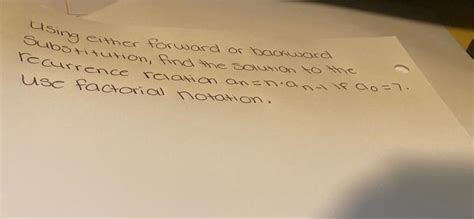 Using either forward or backward
Substitution, find the solution to the
recurrence relation an=n·an-1 if a0=7.
Use factorial notation.